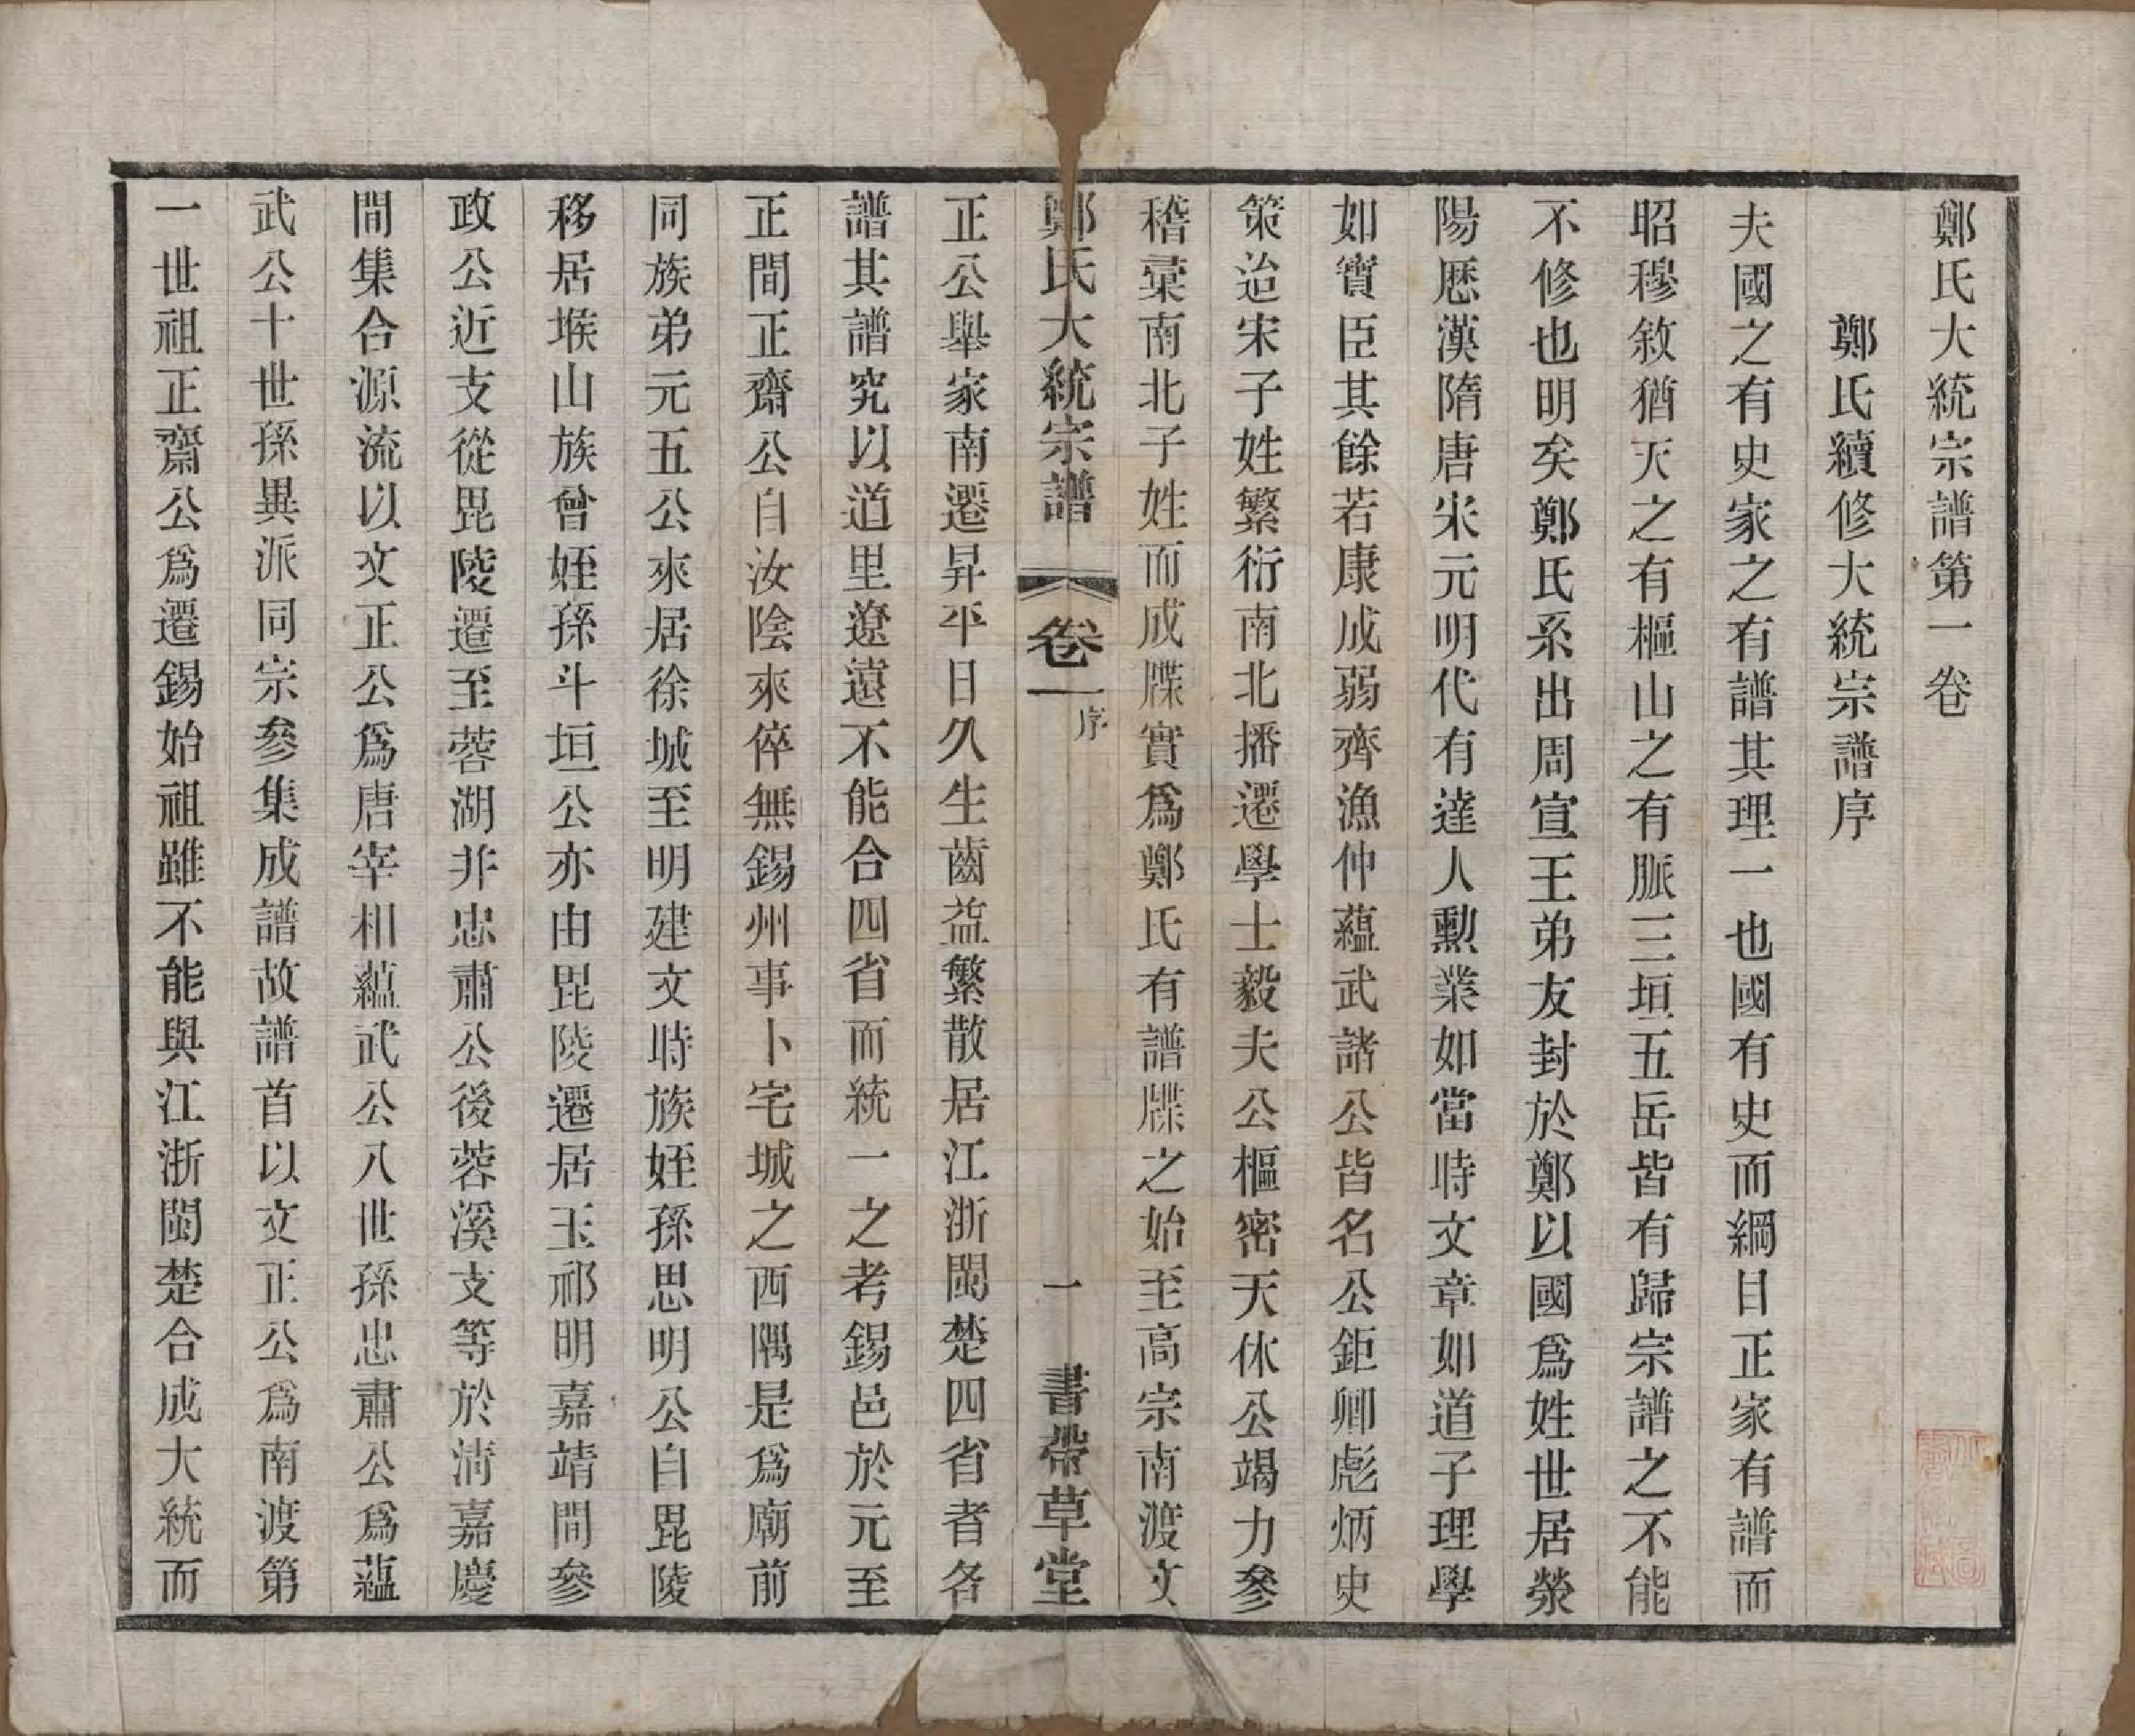 鄭氏大統宗譜第一卷
鄭氏續修大統宗譜序
夫國之有史家之有譜其理一也國有史而綱目正家有譜而
昭穆敘猶天之有樞山之有脈三垣五岳皆有歸宗譜之不能
不修也明矣鄭氏系出周宣王弟友封於鄭以國爲姓世居滎
陽歷漢隋唐宋元明代有達人勲業如當時文章如道子理學
如賓臣其餘若康成弱齊漁仲蘊武諸公皆名公鉅卿彪炳史
策迨宋子姓繁衍南北播遷學士毅夫公樞密天休公竭力參
稽彙南北子姓而成牒實爲鄭氏有譜牒之始至高宗南渡文
鄭氏大統宗譜 卷一 序 一 書帶草堂
正公舉家南遷昇平日久生齒益繁散居江浙閩楚四省者各
譜其譜究以道里遼遠不能合四省而統一之考錫邑於元至
正間正齋公自汝陰來倅無錫州事卜宅城之西隅是爲廟前
同族弟元五公來居徐城至明建文時族姪孫思明公自毘陵
移居堠山族曾姪孫斗垣公亦由毘陵遷居玉祁明嘉靖間參
政公近支從毘陵遷至蓉湖非忠肅公後蓉溪支等於淸嘉慶
間集合源流以文正公爲唐宰相蘊武公八世孫忠肅公爲蘊
武公十世孫異派同宗參集成譜故譜首以文正公爲南渡第
一世祖正齋公爲遷錫始祖雖不能與江浙閩楚合成大統而